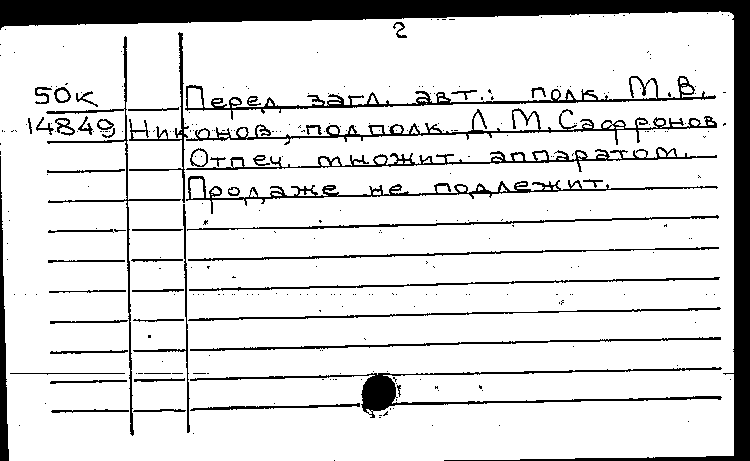 2
50к Перед загл. авт.: полк. М.В.
14849 Никонов, подполк. Д.М. Сафронов.
Отпеч. множит. аппаратом.
Продаже не подлежит.